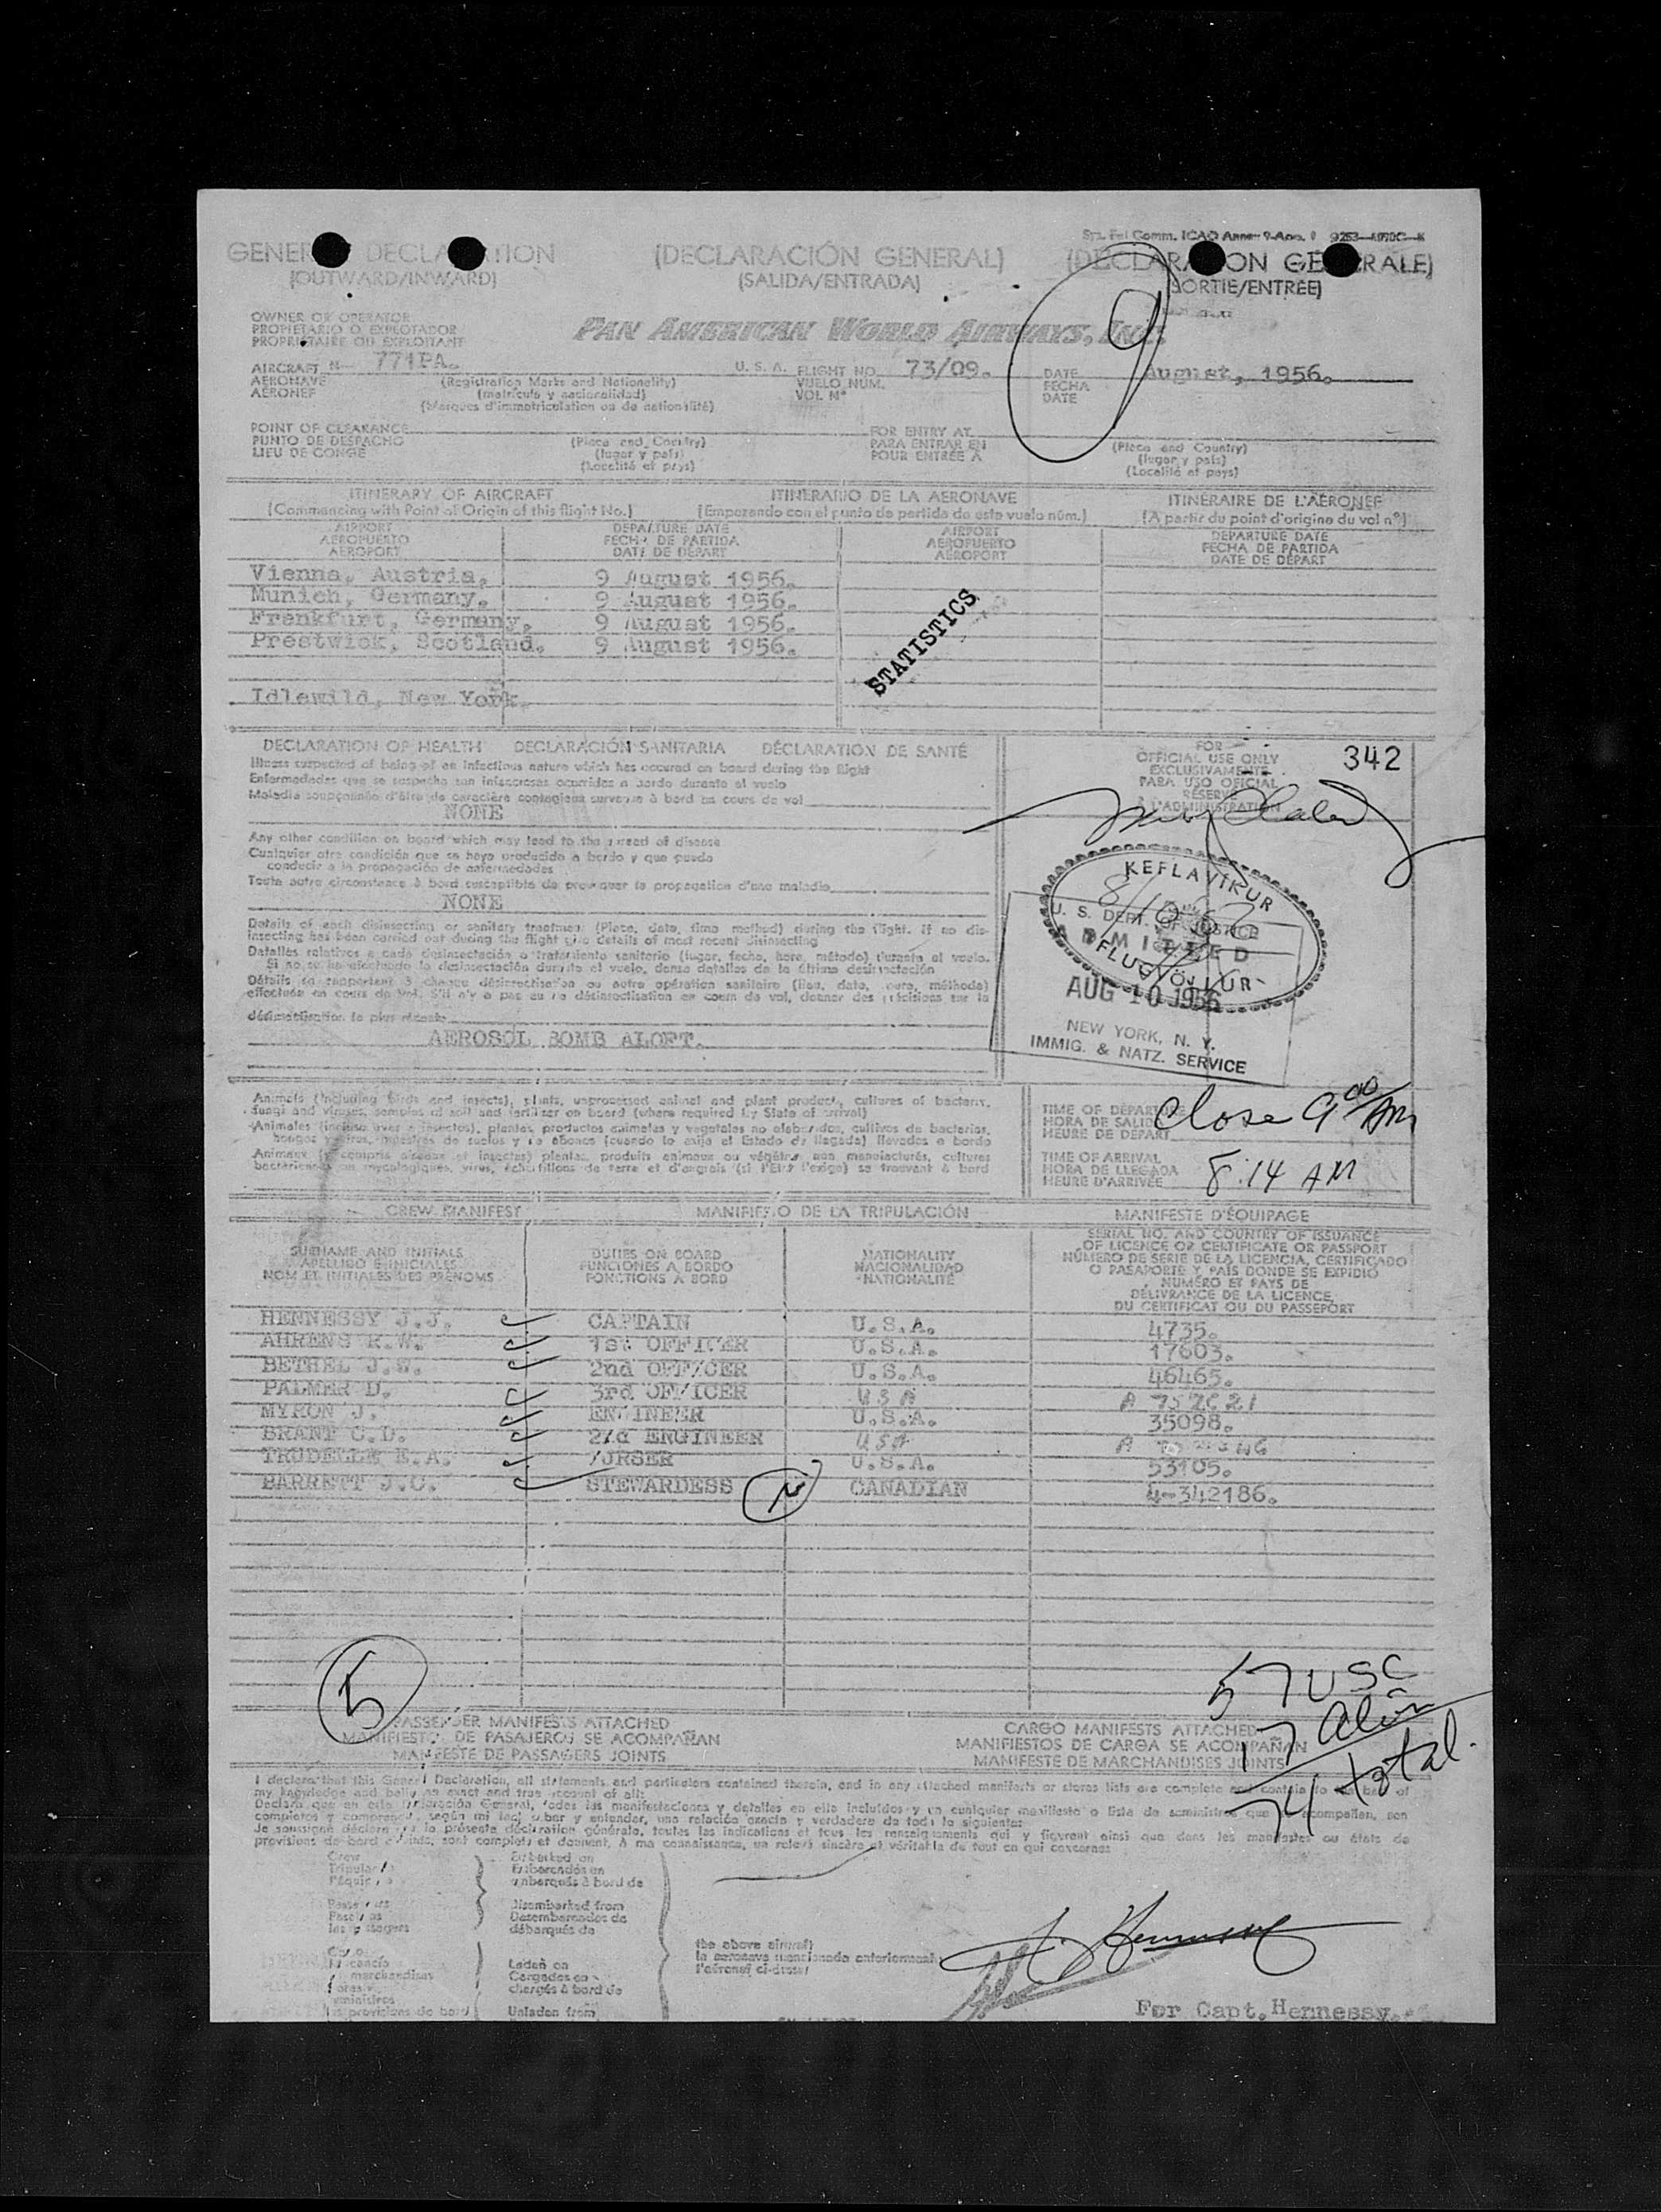 Comm. ICAO Annex 9-App. 1
GENERAL DECLARATION (DECLARACIÓN GENERAL) (DECLARATION GENERALE)
(OUTWARD/INWARD) (SALIDA/ENTRADA) (SORTIE/ENTRÉE)
OWNER OR OPERATOR
PROPIETARIO O EXPLOTADOR
PROPRIETAIRE OU EXPLOITANT
PAN AMERICAN WORLD AIRWAYS, INC.
AIRCRAFT N- 771PA. U. S. A. FLIGHT NO. 73/09. DATE 9 August, 1956.
AERONAVE (Registration Marks and Nationality) VUELO NUM. FECHA
AERONEF (matrícula y nacionalidad) VOL Nº DATE
(Marques d'immatriculation ou de nationalité)
POINT OF CLEARANCE FOR ENTRY AT
PUNTO DE DESPACHO (Place and Country) PARA ENTRAR EN (Place and Country)
LIEU DE CONGE (lugar y país) POUR ENTRÉE A (lugar y país)
(Localité et pays) (Localité et pays)
ITINERARY OF AIRCRAFT ITINERARIO DE LA AERONAVE ITINÉRAIRE DE L'AÉRONEF
(Commencing with Point of Origin of this flight No.) (Empezando con el punto de partida de este vuelo núm.) (A partir du point d'origine du vol nº)
AIRPORT DEPARTURE DATE AIRPORT DEPARTURE DATE
AEROPUERTO FECHA DE PARTIDA AEROPUERTO FECHA DE PARTIDA
AEROPORT DATE DE DÉPART AÉROPORT DATE DE DÉPART
Vienna, Austria. 9 August 1956.
Munich, Germany. 9 August 1956.
Frankfurt, Germany. 9 August 1956.
Prestwick, Scotland. 9 August 1956.
STATISTICS
Idlewild, New York.
DECLARATION OF HEALTH DECLARACIÓN SANITARIA DÉCLARATION DE SANTÉ
Illness suspected of being of an infectious nature which has occured on board during the flight
Enfermedades que se sospecha son infecciosas ocurridas a bordo durante el vuelo
Maladie soupçonnée d'être de caractère contagieux survenue à bord en cours de vol
NONE
Any other condition on board which may lead to the spread of disease
Cualquier otra condición que se haya producido a bordo y que pueda
conducir a la propagación de enfermedades
Toute autre circonstance à bord susceptible de provoquer la propagation d'une maladie
NONE
Details of each disinsecting or sanitary treatment (Place, date, time method) during the flight. If no dis-
insecting has been carried out during the flight give details of most recent disinsecting
Detalles relativos a cada desinsectación o tratamiento sanitario (lugar, fecha, hora, método) durante el vuelo.
Si no se ha efectuado la desinsectación durante el vuelo, dense detalles de la última desinsectación
Détails se rapportant à chaque désinsectisation ou autre opération sanitaire (lieu, date, heure, méthode)
effectuée en cours de vol. S'il n'y a pas eu de désinsectisation en cours de vol, donner des précisions sur la
désinsectisation la plus récente
AEROSOL BOMB ALOFT.
FOR
OFFICIAL USE ONLY 342
EXCLUSIVAMENTE
PARA USO OFICIAL
RÉSERVÉ
À L'ADMINISTRATION
KEFLAVÍKUR
FLUGVÖLLUR
U. S. DEPT. OF JUSTICE
ADMITTED
AUG 10 1956
NEW YORK, N. Y.
IMMIG. & NATZ. SERVICE
Animals (including birds and insects), plants, unprocessed animal and plant products, cultures of bacteria,
fungi and viruses, samples of soil and fertiliser on board (where required by State of arrival)
Animales (incluso aves e insectos), plantas, productos animales y vegetales no elaborados, cultivos de bacterias,
hongos y virus, muestras de suelos y de abonos (cuando lo exija el Estado de llegada) llevados a bordo
Animaux (y compris oiseaux et insectes) plantes, produits animaux ou végétaux non manufacturés, cultures
bactériennes ou mycologiques, virus, échantillons de terre et d'engrais (si l'État l'exige) se trouvant à bord
TIME OF DEPARTURE
HORA DE SALIDA Close 9 00 AM
HEURE DE DÉPART
TIME OF ARRIVAL
HORA DE LLEGADA 8:14 AM
HEURE D'ARRIVÉE
CREW MANIFEST MANIFIESTO DE LA TRIPULACIÓN MANIFESTE D'ÉQUIPAGE
SURNAME AND INITIALS DUTIES ON BOARD NATIONALITY SERIAL NO. AND COUNTRY OF ISSUANCE
APELLIDO E INICIALES FUNCIONES A BORDO NACIONALIDAD OF LICENCE OR CERTIFICATE OR PASSPORT
NOM ET INITIALES DES PRÉNOMS FONCTIONS A BORD NATIONALITÉ NÚMERO DE SERIE DE LA LICENCIA, CERTIFICADO
O PASAPORTE Y PAÍS DONDE SE EXPIDIÓ
NUMÉRO ET PAYS DE
DÉLIVRANCE DE LA LICENCE,
DU CERTIFICAT OU DU PASSEPORT
HENNESSY J.J. CAPTAIN U.S.A. 4735.
AHRENS R.W. 1st OFFICER U.S.A. 17603.
BETHEL J.W. 2nd OFFICER U.S.A. 46465.
PALMER D. 3rd OFFICER USA
MYRON J. ENGINEER U.S.A. 35098.
BRANT C.D. 2nd ENGINEER USA
TRUDELLE E.A. PURSER U.S.A. 53105.
BARRETT J.C. STEWARDESS CANADIAN 4-342186.
5
57 USC
17 Alien
74 total.
PASSENGER MANIFESTS ATTACHED CARGO MANIFESTS ATTACHED
MANIFIESTO DE PASAJEROS SE ACOMPAÑAN MANIFIESTOS DE CARGA SE ACOMPAÑAN
MANIFESTE DE PASSAGERS JOINTS MANIFESTE DE MARCHANDISES JOINTS
I declare that this General Declaration, all statements and particulars contained therein, and in any attached manifests or stores lists are complete and contain to the best of
my knowledge and belief an exact and true account of all:
Declaro que en esta Declaración General, todas las manifestaciones y detalles en ella incluídos y en cualquier manifiesto o lista de suministros que acompañen, son
completos y comprenden, según mi leal saber y entender, una relación exacta y verdadera de todo lo siguiente:
Je soussigné déclare que la présente déclaration générale, toutes les indications et tous les renseignements qui y figurent ainsi que dans les manifestes ou états de
provisions de bord joints, sont complets et donnent, à ma connaissance, un relevé sincère et véritable de tout ce qui concerne:
Crew Embarked on
Tripulación Embarcados en
l'équipage embarqués à bord de
Passengers Disembarked from
Pasajeros Desembarcados de
les passagers débarqués de
Cargo
Laden on
Cargados en
marchandises chargés à bord de
the above aircraft
la aeronave mencionada anteriormente
l'aéronef ci-dessus
les provisions de bord Unladen from
J. Hennessy
For Capt. Hennessy.